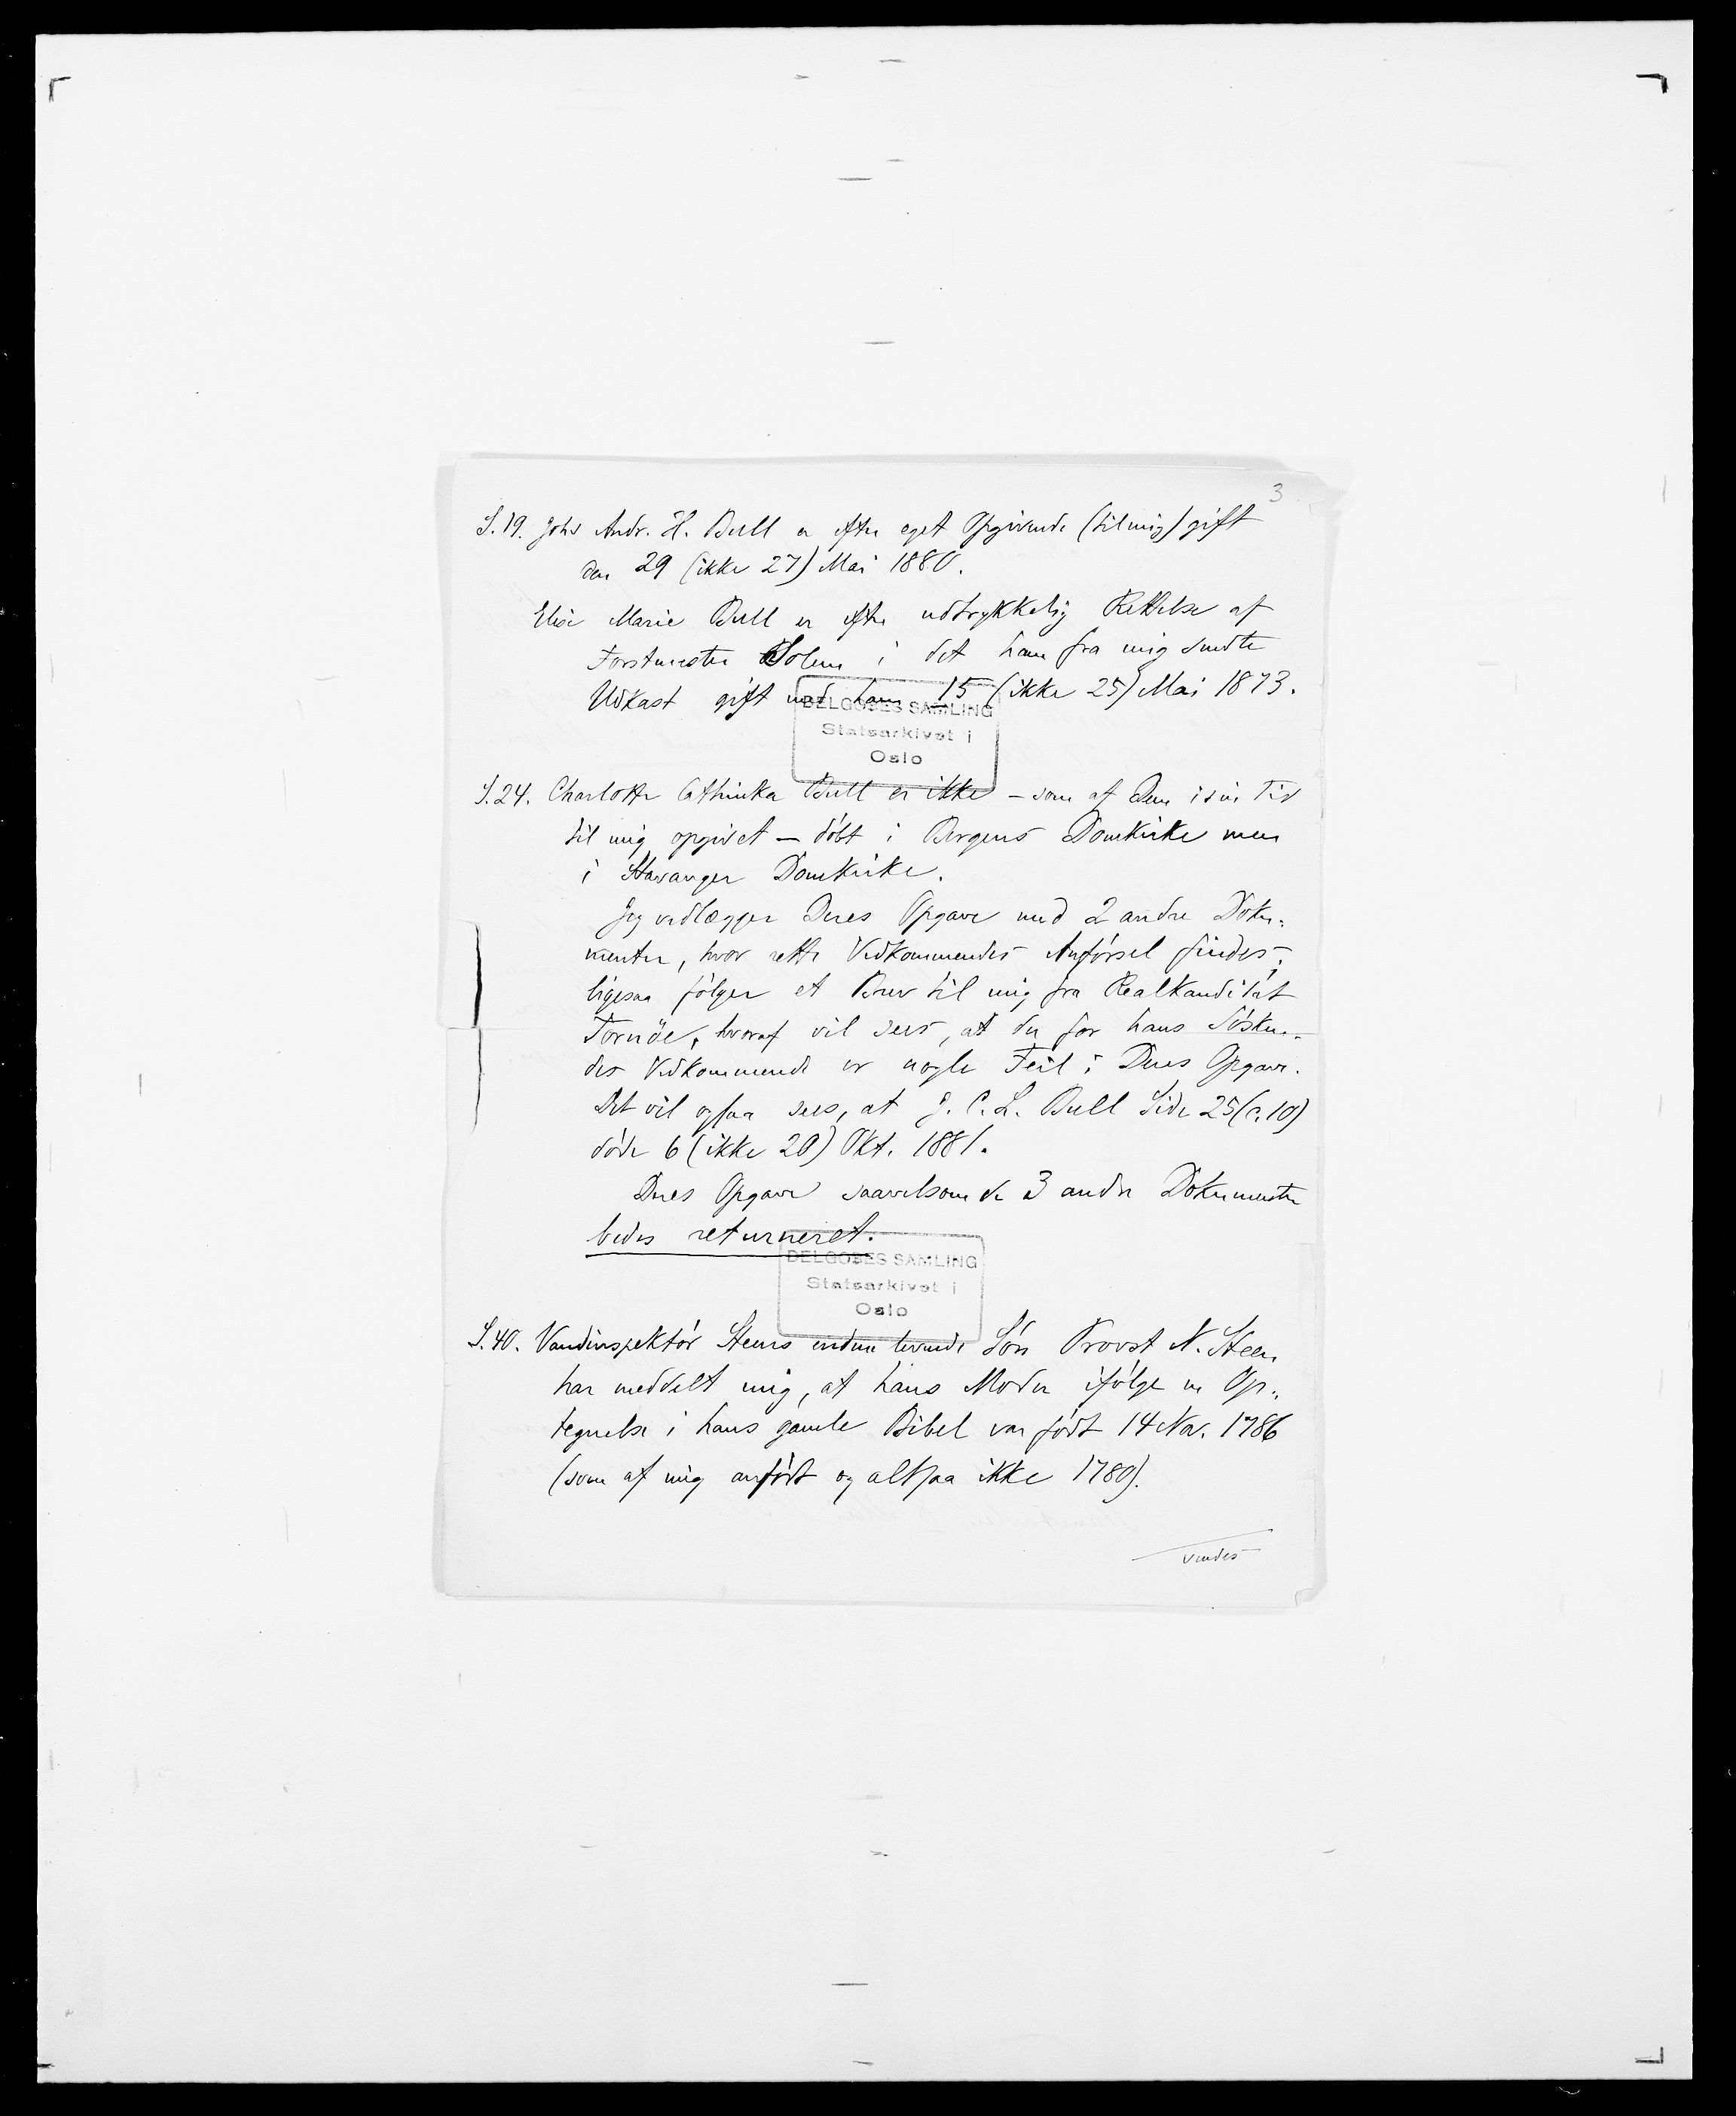 3
S. 19. Johs Andr. H. Bull er efter eget Opgivende (til mig) gift
den 29 (ikke 27) Mai 1880.
Elise Marie Bull er efter udtrykkelig Rettelse af
Forstmester i det ham fra mig sendte
Udkast gift med ham 15 (ikke 25) Mai 1873.
DELGOBES SAMLING
Statsarkivet i
Oslo
S. 24. Charlotte Cathinka Bull er ikke – som af Dem i sin Tid
til mig opgivet – döbt i Bergens Domkirke men
i Stavanger Domkirke.
Jeg vedlægger Deres Opgave med 2 andre Doku-
menter, hvor rette Vedkommendes Anförsel findes;
ligesaa fölger et Brev til mig fra Realkandidat
Tornöe, hvoraf vil sees, at der for hans Sösken-
des Vedkommende er nogle Feil i Deres Opgave.
Det vil ogsaa sees, at J. C. L. Bull Side 25 (c. 10)
döde 6 (ikke 20) Okt. 1881.
Deres Opgave saavelsom de 3 andre Dokumenter
bedes returneret.
DELGOBES SAMLING
Statsarkivet i
Oslo
S. 40. Vandinspektör Steens endnu levende Sön Provst N. Steen
har meddelt mig, at hans Moder ifölge en Op-
tegnelse i hans gamle Bibel var födt 14 Nov. 1786
(som af mig anfört og altsaa ikke 1780).
vendes